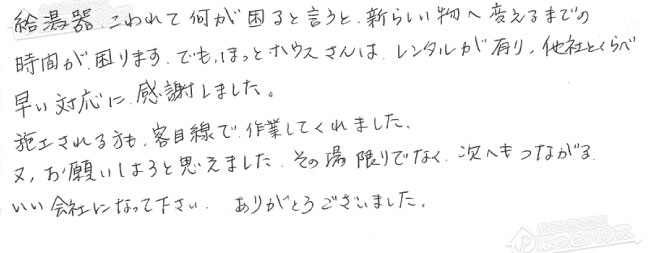 給湯器、こわれて何が困ると言うと、新らしい物へ変えるまでの
時間が、困ります。でも、ほっとハウスさんは、レンタルが有り、他社とくらべ
早い対応に、感謝しました。
施工される方も、客目線で、作業してくれました、
又、お願いしようと思えました、その場限りでなく、次へもつながる、
いい会社になって下さい、ありがとうございました。
ほっとハウス